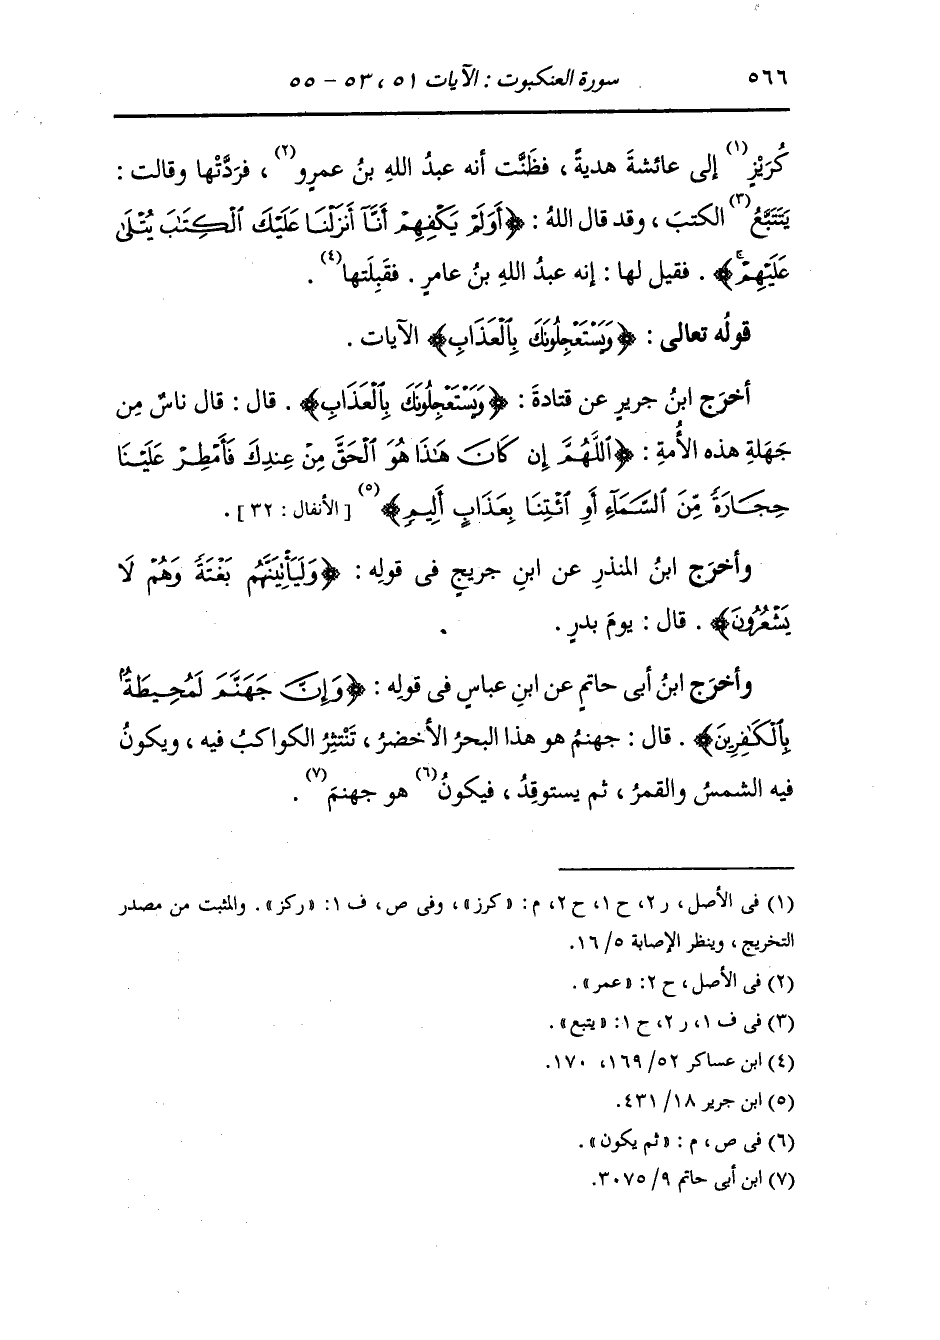 ٥٦٦ سورة العنكبوت : الآيات ٥١ ، ٥٣ - ٥٥
كُرَيْزٍ(١) إلى عائشةَ هديةً ، فظَنَّت أنه عبدُ اللهِ بنُ عمرٍو(٢) ، فرَدَّتْها وقالت :
يَتَتَبَّعُ(٣) الكتبَ ، وقد قال اللهُ : ﴿أَوَلَمْ يَكْفِهِمْ أَنَّآ أَنزَلْنَا عَلَيْكَ ٱلْكِتَٰبَ يُتْلَىٰ
عَلَيْهِمْۚ﴾ . فقيل لها : إنه عبدُ اللهِ بنُ عامرٍ . فقَبِلَتها(٤) .
قولُه تعالى : ﴿وَيَسْتَعْجِلُونَكَ بِٱلْعَذَابِ﴾ الآيات .
أخرَج ابنُ جريرٍ عن قتادةَ : ﴿وَيَسْتَعْجِلُونَكَ بِٱلْعَذَابِ﴾ . قال : قال ناسٌ مِن
جَهَلةِ هذه الأُمةِ : ﴿ٱللَّهُمَّ إِن كَانَ هَٰذَا هُوَ ٱلْحَقَّ مِنْ عِندِكَ فَأَمْطِرْ عَلَيْنَا
حِجَارَةً مِّنَ ٱلسَّمَآءِ أَوِ ٱئْتِنَا بِعَذَابٍ أَلِيمٍ﴾(٥) [ الأنفال : ٣٢ ] .
وأخرَج ابنُ المنذرِ عن ابنِ جريجٍ فى قولِه : ﴿وَلَيَأْتِيَنَّهُم بَغْتَةً وَهُمْ لَا
يَشْعُرُونَ﴾ . قال : يومَ بدرٍ .
وأخرَج ابنُ أبى حاتمٍ عن ابنِ عباسٍ فى قولِه : ﴿وَإِنَّ جَهَنَّمَ لَمُحِيطَةٌۢ
بِٱلْكَٰفِرِينَ﴾ . قال : جهنمُ هو هذا البحرُ الأخضرُ ، تَنْتثِرُ الكواكبُ فيه ، ويكونُ
فيه الشمسُ والقمرُ ، ثم يستوقِدُ ، فيكونُ(٦) هو جهنمَ(٧) .
(١) فى الأصل، ر ٢، ح ١، ح ٢، م : «كرز»، وفى ص، ف ١: «ركز». والمثبت من مصدر
التخريج ، وينظر الإصابة ٥/ ١٦.
(٢) فى الأصل، ح ٢: «عمر».
(٣) فى ف ١، ر ٢، ح ١: «يتبع».
(٤) ابن عساكر ٥٢/ ١٦٩، ١٧٠.
(٥) ابن جرير ١٨/ ٤٣١.
(٦) فى ص، م : «ثم يكون».
(٧) ابن أبى حاتم ٩/ ٣٠٧٥.